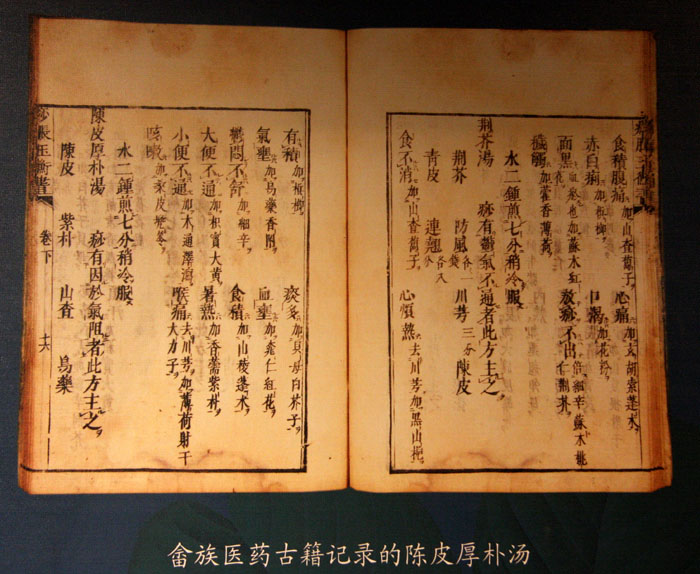 食積腹痛 加山査蔔子 心痛 加玄胡索蓬术
赤白痢 加檳榔 口渴 加花粉
面黑 血瘀也加蘇木紅花 放痧不出 倍細辛蘇木桃仁荆芥
加藿香薄荷
水二鍾煎七分稍冷服
荆芥湯 痧有鬱氣不通者此方主之
荆芥 防風各一錢 川芎三分 陳皮
青皮 連翹各八分
食不消 加山査蔔子 心煩熱 去川芎加黑山梔
有積 加檳榔 痰多 加貝母白芥子
氣壅 加烏藥香附 血壅 加桃仁紅花
鬱悶不舒 加細辛 食積 加山稜蓬术
大便不通 加枳實大黃 暑熱 加香薷紫朴
小便不通 加木通澤瀉 喉痛 去川芎加薄荷射干大力子
咳嗽 加桑皮
水二鍾煎七分稍冷服
陳皮厚朴湯 痧有因於氣阻者此方主之
陳皮 紫朴 山査 烏藥
痧脹玉衡書 卷下 十六
畲族医药古籍记录的陈皮厚朴汤